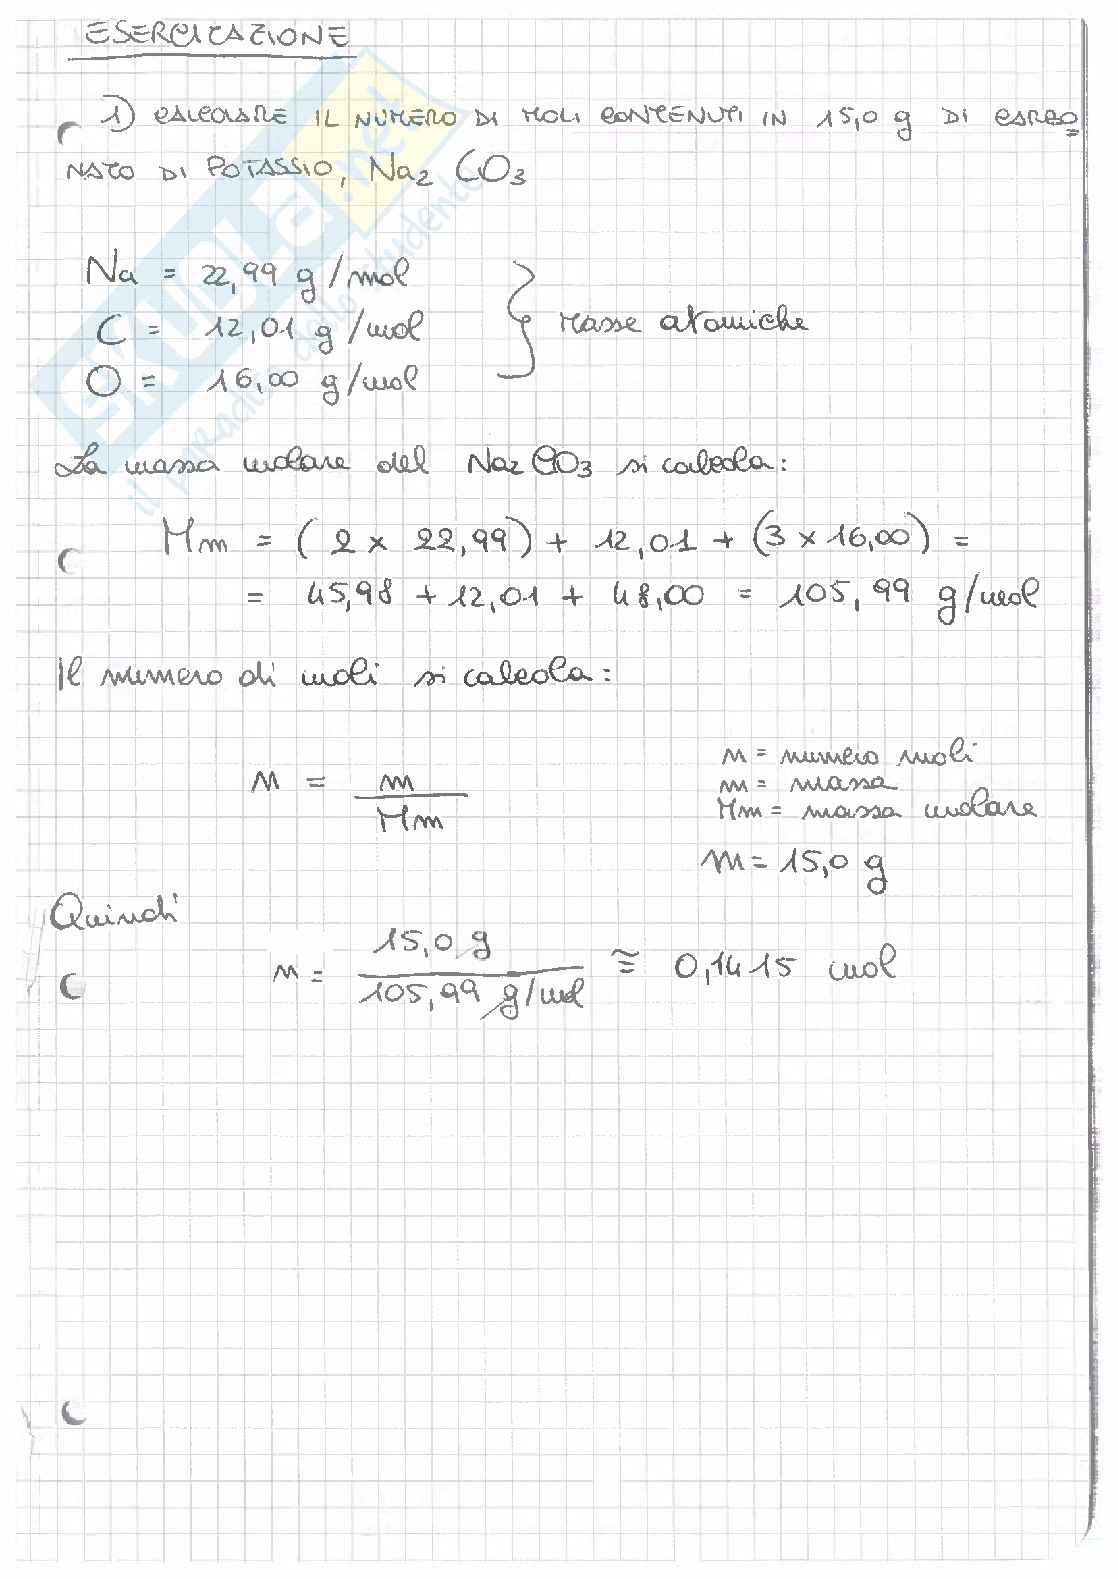 ESERCITAZIONE
1) CALCOLARE IL NUMERO DI MOLI CONTENUTI IN 15,0 g DI CARBO=
NATO DI POTASSIO, Na₂CO₃
Na = 22,99 g/mol
C = 12,01 g/mol
O = 16,00 g/mol
} Masse atomiche
La massa molare del Na₂CO₃ si calcola:
Mm = (2 x 22,99) + 12,01 + (3 x 16,00) =
= 45,98 + 12,01 + 48,00 = 105,99 g/mol
Il numero di moli si calcola:
n = m / Mm
n = numero moli
m = massa
Mm = massa molare
m = 15,0 g
Quindi
n = 15,0 g / 105,99 g/mol ≅ 0,1415 mol
SKUOLA.net
il paradiso dello studente